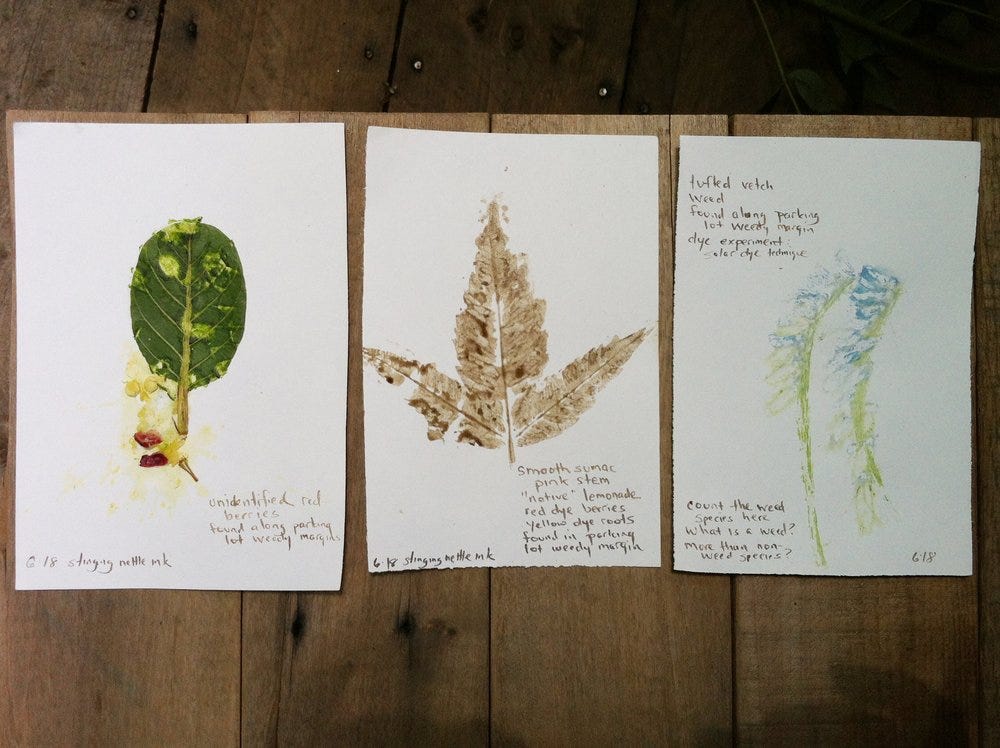 unidentified red
berries
found along parking
lot weedy margins
6 18 stinging nettle mk
smooth sumac
pink stem
"native" lemonade
red dye berries
yellow dye roots
found in parking
lot weedy margin
6·18 stinging nettle mk
tufted vetch
weed
found along parking
lot weedy margin
dye experiment:
solar dye technique
count the weed
species here
what is a weed?
more than non-
weed species?
6·18